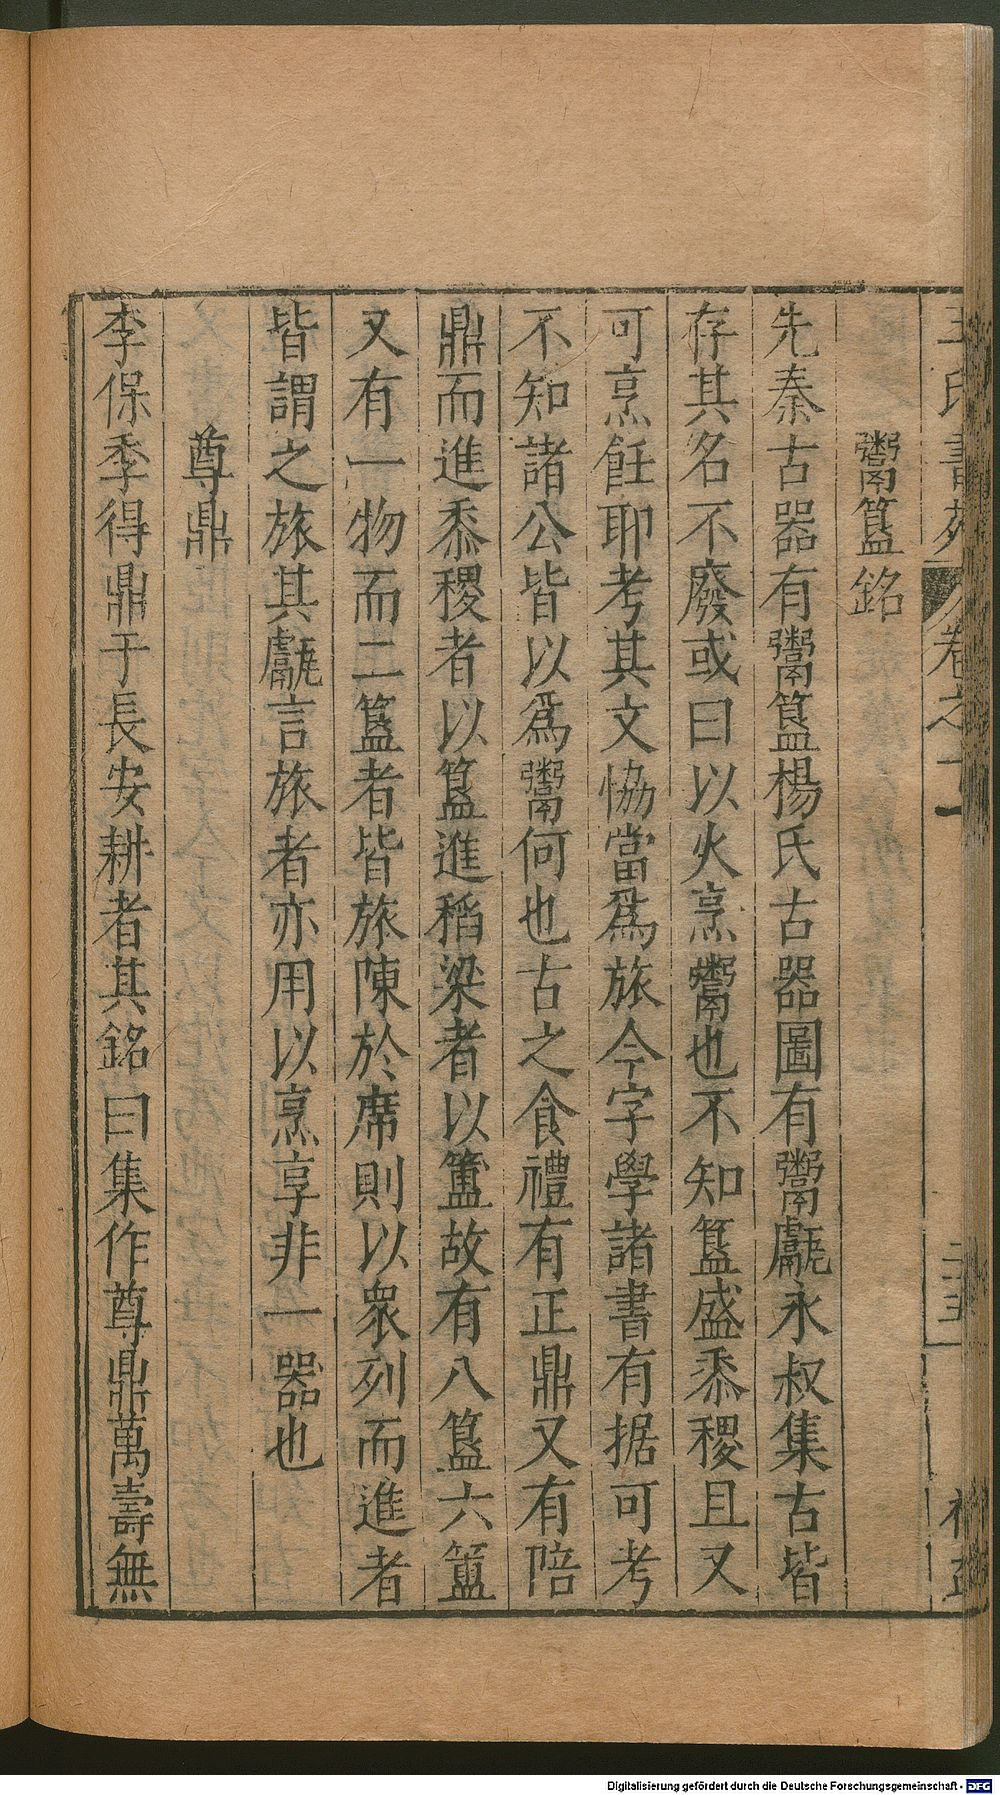 鬻簋銘
先秦古器有鬻簋楊氏古器圖有鬻甗永叔集古皆
存其名不廢或曰以火烹鬻也不知簋盛黍稷且又
可烹飪耶考其文恊當爲旅今字學諸書有据可考
不知諸公皆以爲鬻何也古之食禮有正鼎又有陪
鼎而進黍稷者以簋進稻梁者以簠故有八簋六簠
又有一物而二簋者皆旅陳於席則以衆列而進者
皆謂之旅其甗言旅者亦用以烹享非一器也
尊鼎
李保季得鼎于長安耕者其銘曰集作尊鼎萬壽無
Digitalisierung gefördert durch die Deutsche Forschungsgemeinschaft - DFG